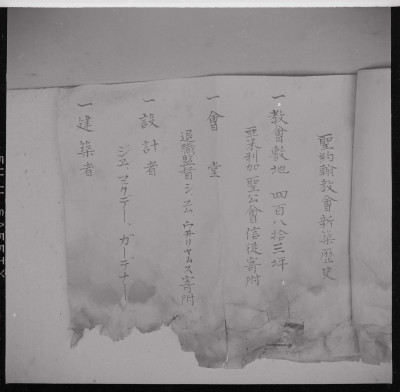 聖約翰教會新築歴史
一教會敷地 四百八拾三坪
亜米利加聖公會信徒寄附
一會堂
退職監督シ、エム、ウ井リヤムス寄附
一設計者
ジエ、マクデー、ガーデナー
一建築者